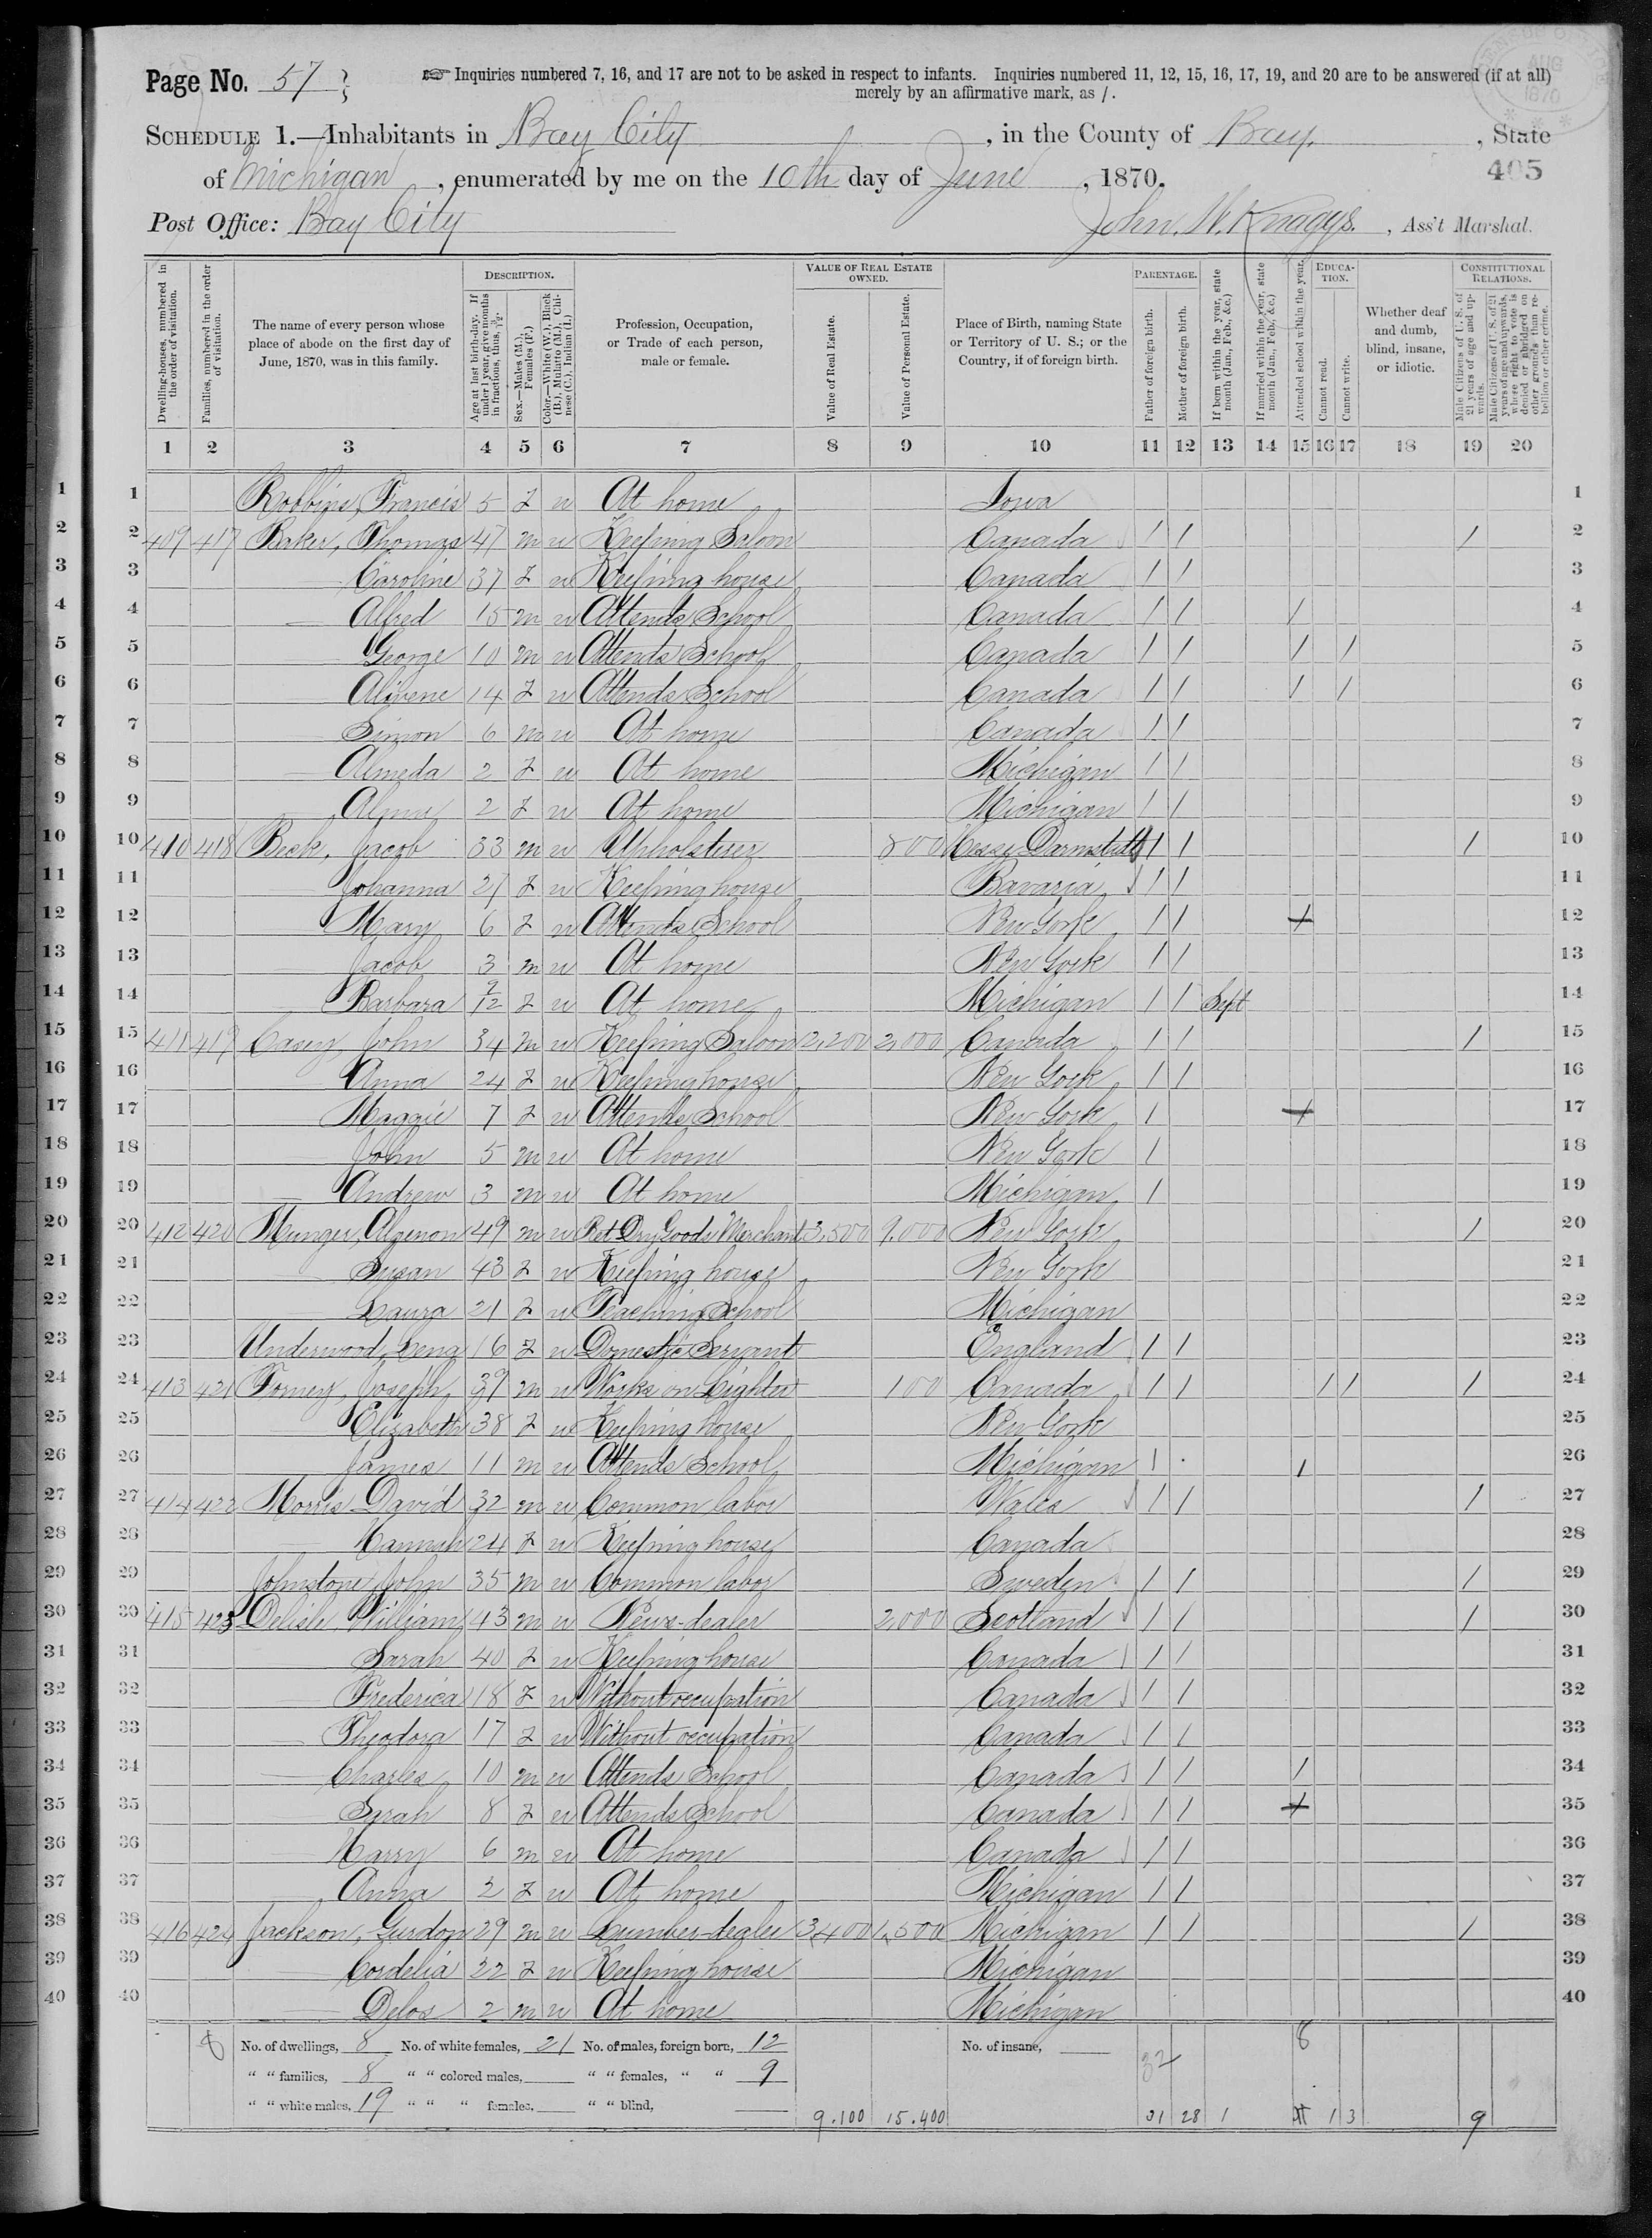 Page No. 57
☞ Inquiries numbered 7, 16, and 17 are not to be asked in respect to infants. Inquiries numbered 11, 12, 15, 16, 17, 19, and 20 are to be answered (if at all)
merely by an affirmative mark, as /.
SCHEDULE 1.—Inhabitants in Bay City, in the County of Bay, State
405
of Michigan, enumerated by me on the 10th day of June, 1870.
Post Office: Bay City John. W. Knaggs., Ass't Marshal.
Dwelling-houses, numbered in the order of visitation.
Families, numbered in the order of visitation.
The name of every person whose place of abode on the first day of June, 1870, was in this family.
DESCRIPTION.
Age at last birth-day. If under 1 year, give months in fractions, thus, 3/12.
Sex.—Males (M.), Females (F.)
Color.—White (W.), Black (B.), Mulatto (M.), Chinese (C.), Indian (I.)
Profession, Occupation, or Trade of each person, male or female.
VALUE OF REAL ESTATE OWNED.
Value of Real Estate.
Value of Personal Estate.
Place of Birth, naming State or Territory of U. S.; or the Country, if of foreign birth.
PARENTAGE.
Father of foreign birth.
Mother of foreign birth.
If born within the year, state month (Jan., Feb., &c.)
If married within the year, state month (Jan., Feb., &c.)
Attended school within the year.
EDUCATION.
Cannot read.
Cannot write.
Whether deaf and dumb, blind, insane, or idiotic.
CONSTITUTIONAL RELATIONS.
Male Citizens of U. S. of 21 years of age and upwards.
Male Citizens of U. S. of 21 years of age and upwards, whose right to vote is denied or abridged on other grounds than rebellion or other crime.
1 2 3 4 5 6 7 8 9 10 11 12 13 14 15 16 17 18 19 20
1 Robbins, Francis 5 F w At home Iowa 1
2 409 417 Baker, Thomas 47 m w Keeping Saloon Canada / / / 2
3 Caroline 37 F w Keeping house Canada / / 3
4 Alfred 15 m w Attends School Canada / / / 4
5 George 10 m w Attends School Canada / / / / 5
6 14 F w Attends School Canada / / / / 6
7 Simon 6 m w At home Canada / / 7
8 Almeda 2 F w At home Michigan / / 8
9 Alma 2 F w At home Michigan / / 9
10 410 418 Beck, Jacob 33 m w Upholsterer 800 Hesse Darmstadt / / / 10
11 Johanna 27 F w Keeping house Bavaria / / 11
12 Mary 6 F w Attends School New York / / / 12
13 Jacob 3 m w At home New York / / 13
14 Barbara 9/12 F w At home Michigan / / Sept 14
15 411 419 Casey, John 34 m w Keeping Saloon 2,200 2,000 Canada / / / 15
16 Anna 24 F w Keeping house New York / / 16
17 Maggie 7 F w Attends School New York / / 17
18 John 5 m w At home New York / 18
19 Andrew 3 m w At home Michigan / 19
20 412 420 Munger, Algenon 49 m w Ret. Dry Goods Merchant 3,500 9,000 New York / 20
21 Susan 43 F w Keeping house New York 21
22 Laura 21 F w Teaching School Michigan 22
23 Underwood, Lena 16 F w Domestic Servant England / / 23
24 413 421 Forney, Joseph 39 m w Works on Lighter 100 Canada / / / / / 24
25 Elizabeth 38 F w Keeping house New York 25
26 James 11 m w Attends School Michigan / / 26
27 414 422 Morris David 32 m w Common labor Wales / / / 27
28 Hannah 24 F w Keeping house Canada 28
29 Johnstone, John 35 m w Common labor Sweden / / / 29
30 415 423 Delisle, William 43 m w News-dealer 2,000 Scotland / / / 30
31 Sarah 40 F w Keeping house Canada / / 31
32 Frederica 18 F w Without occupation Canada / / 32
33 Theodora 17 F w Without occupation Canada / / 33
34 Charles 10 m w Attends School Canada / / / 34
35 Sarah 8 F w Attends School Canada / / / 35
36 Harry 6 m w At home Canada / / 36
37 Anna 2 F w At home Michigan / / 37
38 416 424 Jackson, Gurdon 29 m w Lumber-dealer 3,400 1,500 Michigan / / / 38
39 Cordelia 22 F w Keeping house Michigan 39
40 Delos 2 m w At home Michigan 40
8 No. of dwellings, 8 No. of white females, 21 No. of males, foreign born, 12 No. of insane, 32 8
" " families, 8 " " colored males, " " females, " " 9
" " white males, 19 " " " females, " " blind,
9.100 15.400 31 28 1 1 3 9